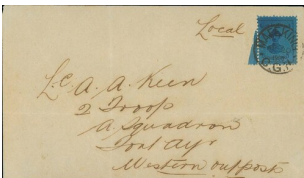 Local
L.C. A. A. Keen
2 Troop
A. Squadron
Western outposts